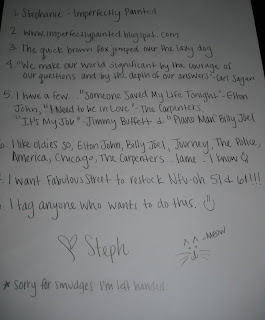 1. Stephanie - Imperfectly Painted
2. www.imperfectlypainted.blogspot.com
3. The quick brown fox jumped over the lazy dog
4. "We make our world significant by the courage of
our questions and by the depth of our answers" - Carl Sagan
5. I have a few. "Someone Saved My Life Tonight" - Elton
John, "I Need to be in Love" - The Carpenters,
"It's My Job" - Jimmy Buffett & "Piano Man" Billy Joel
I like oldies so, Elton John, Billy Joel, Journey, The Police,
America, Chicago, The Carpenters... lame I know
I want Fabulous Street to restock Nfu-oh 51 & 61!!!
I tag anyone who wants to do this.
Steph
-meow
* Sorry for smudges I'm left handed.